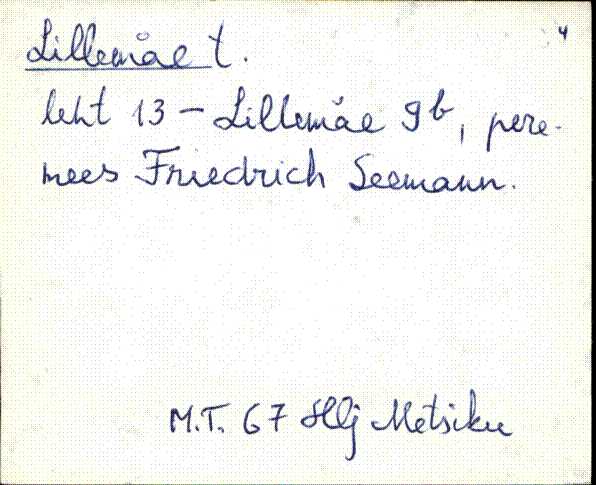 4
Lillemäe t.
leht 13 – Lillemäe 9b, pere-
mees Friedrich Seemann.
M.T. 67 Hlj Metsiku